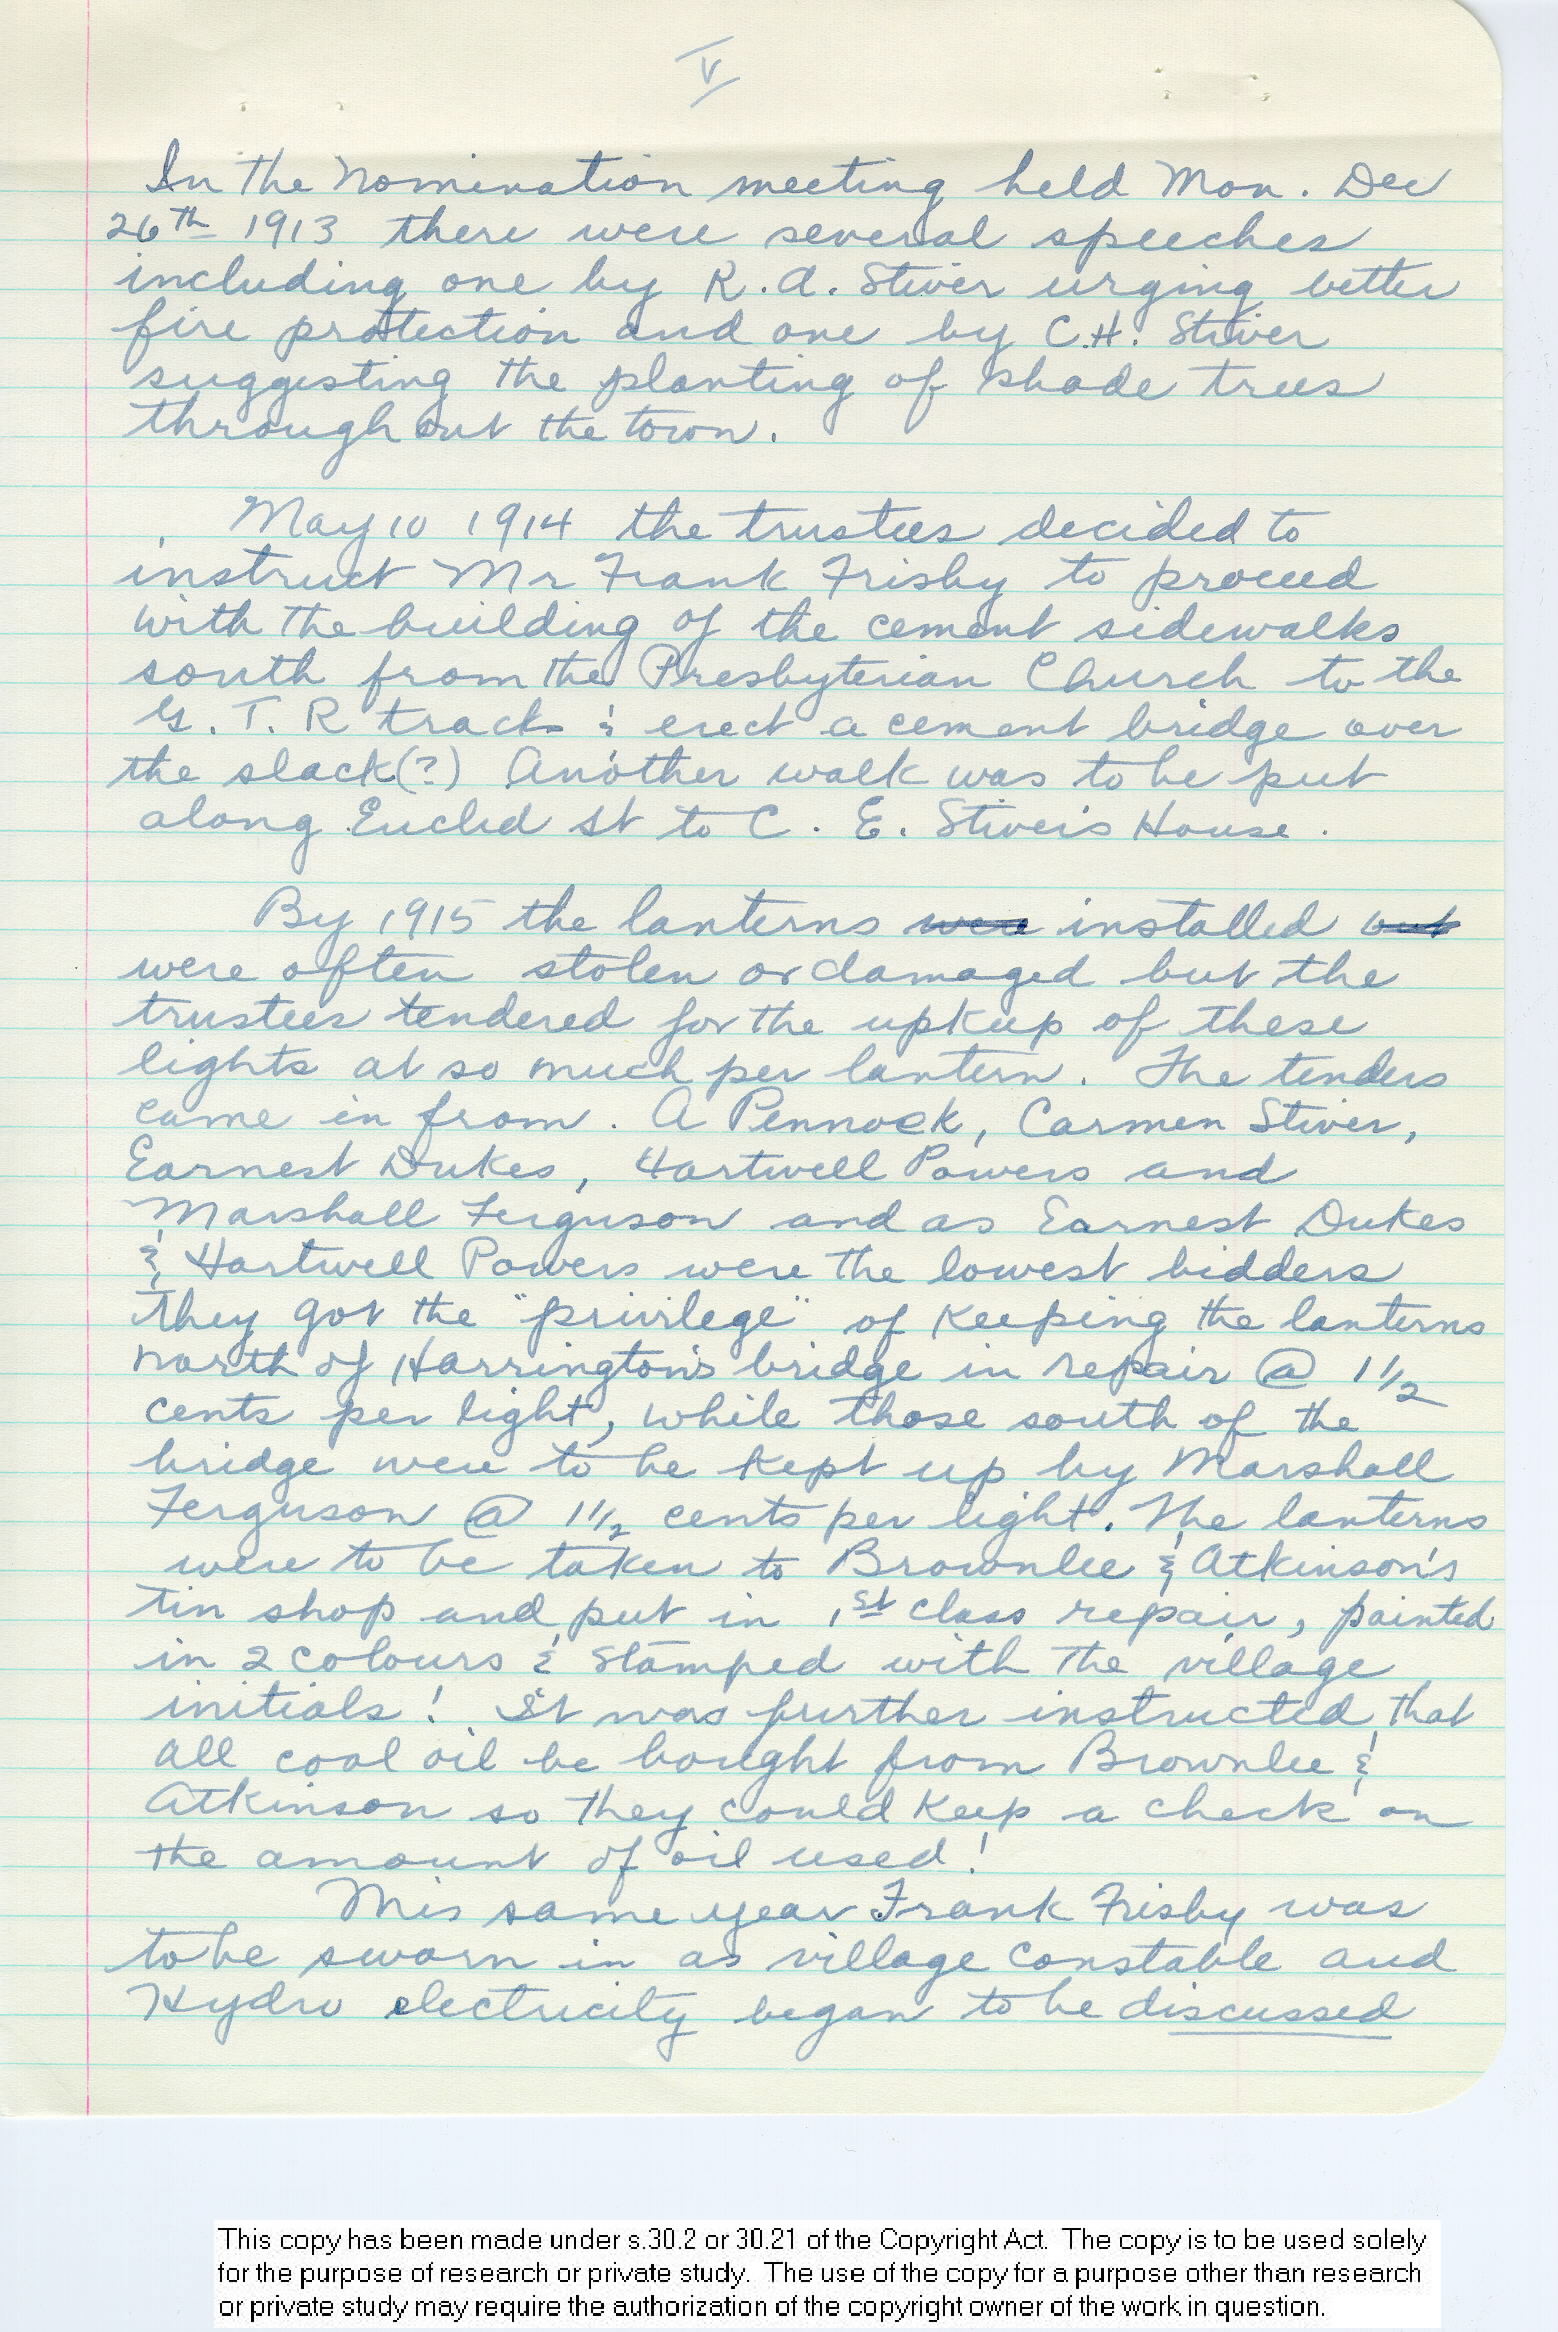 V
In the Nomination meeting held Mon. Dec
26th 1913 there were several speeches
including one by R.A. Stiver urging better
fire protection and one by C.H. Stiver
suggesting the planting of shade trees
throughout the town.
May 10 1914 the trustees decided to
instruct Mr Frank Frisby to proceed
with the building of the cement sidewalks
south from the Presbyterian Church to the
G.T.R track & erect a cement bridge over
the slack(?) Another walk was to be put
along Euclid St to C. E. Stiver's House.
By 1915 the lanterns were installed but
were often stolen or damaged but the
trustees tendered for the upkeep of these
lights at so much per lantern. The tenders
came in from. A Pennock, Carmen Stiver,
Earnest Dukes, Hartwell Powers and
Marshall Ferguson and as Earnest Dukes
& Hartwell Powers were the lowest bidders
They got the "privilege" of keeping the lanterns
north of Harrington's bridge in repair @ 1 1/2
cents per light, while those south of the
bridge were to be kept up by Marshall
Ferguson @ 1 1/2 cents per light. The lanterns
were to be taken to Brownlee & Atkinson's
tin shop and put in 1st class repair, painted
in 2 colours & stamped with the village
initials! It was further instructed that
all coal oil be bought from Brownlee &
Atkinson so they could keep a check on
the amount of oil used!
This same year Frank Frisby was
to be sworn in as village constable and
Hydro electricity began to be discussed
This copy has been made under s.30.2 or 30.21 of the Copyright Act. The copy is to be used solely
for the purpose of research or private study. The use of the copy for a purpose other than research
or private study may require the authorization of the copyright owner of the work in question.